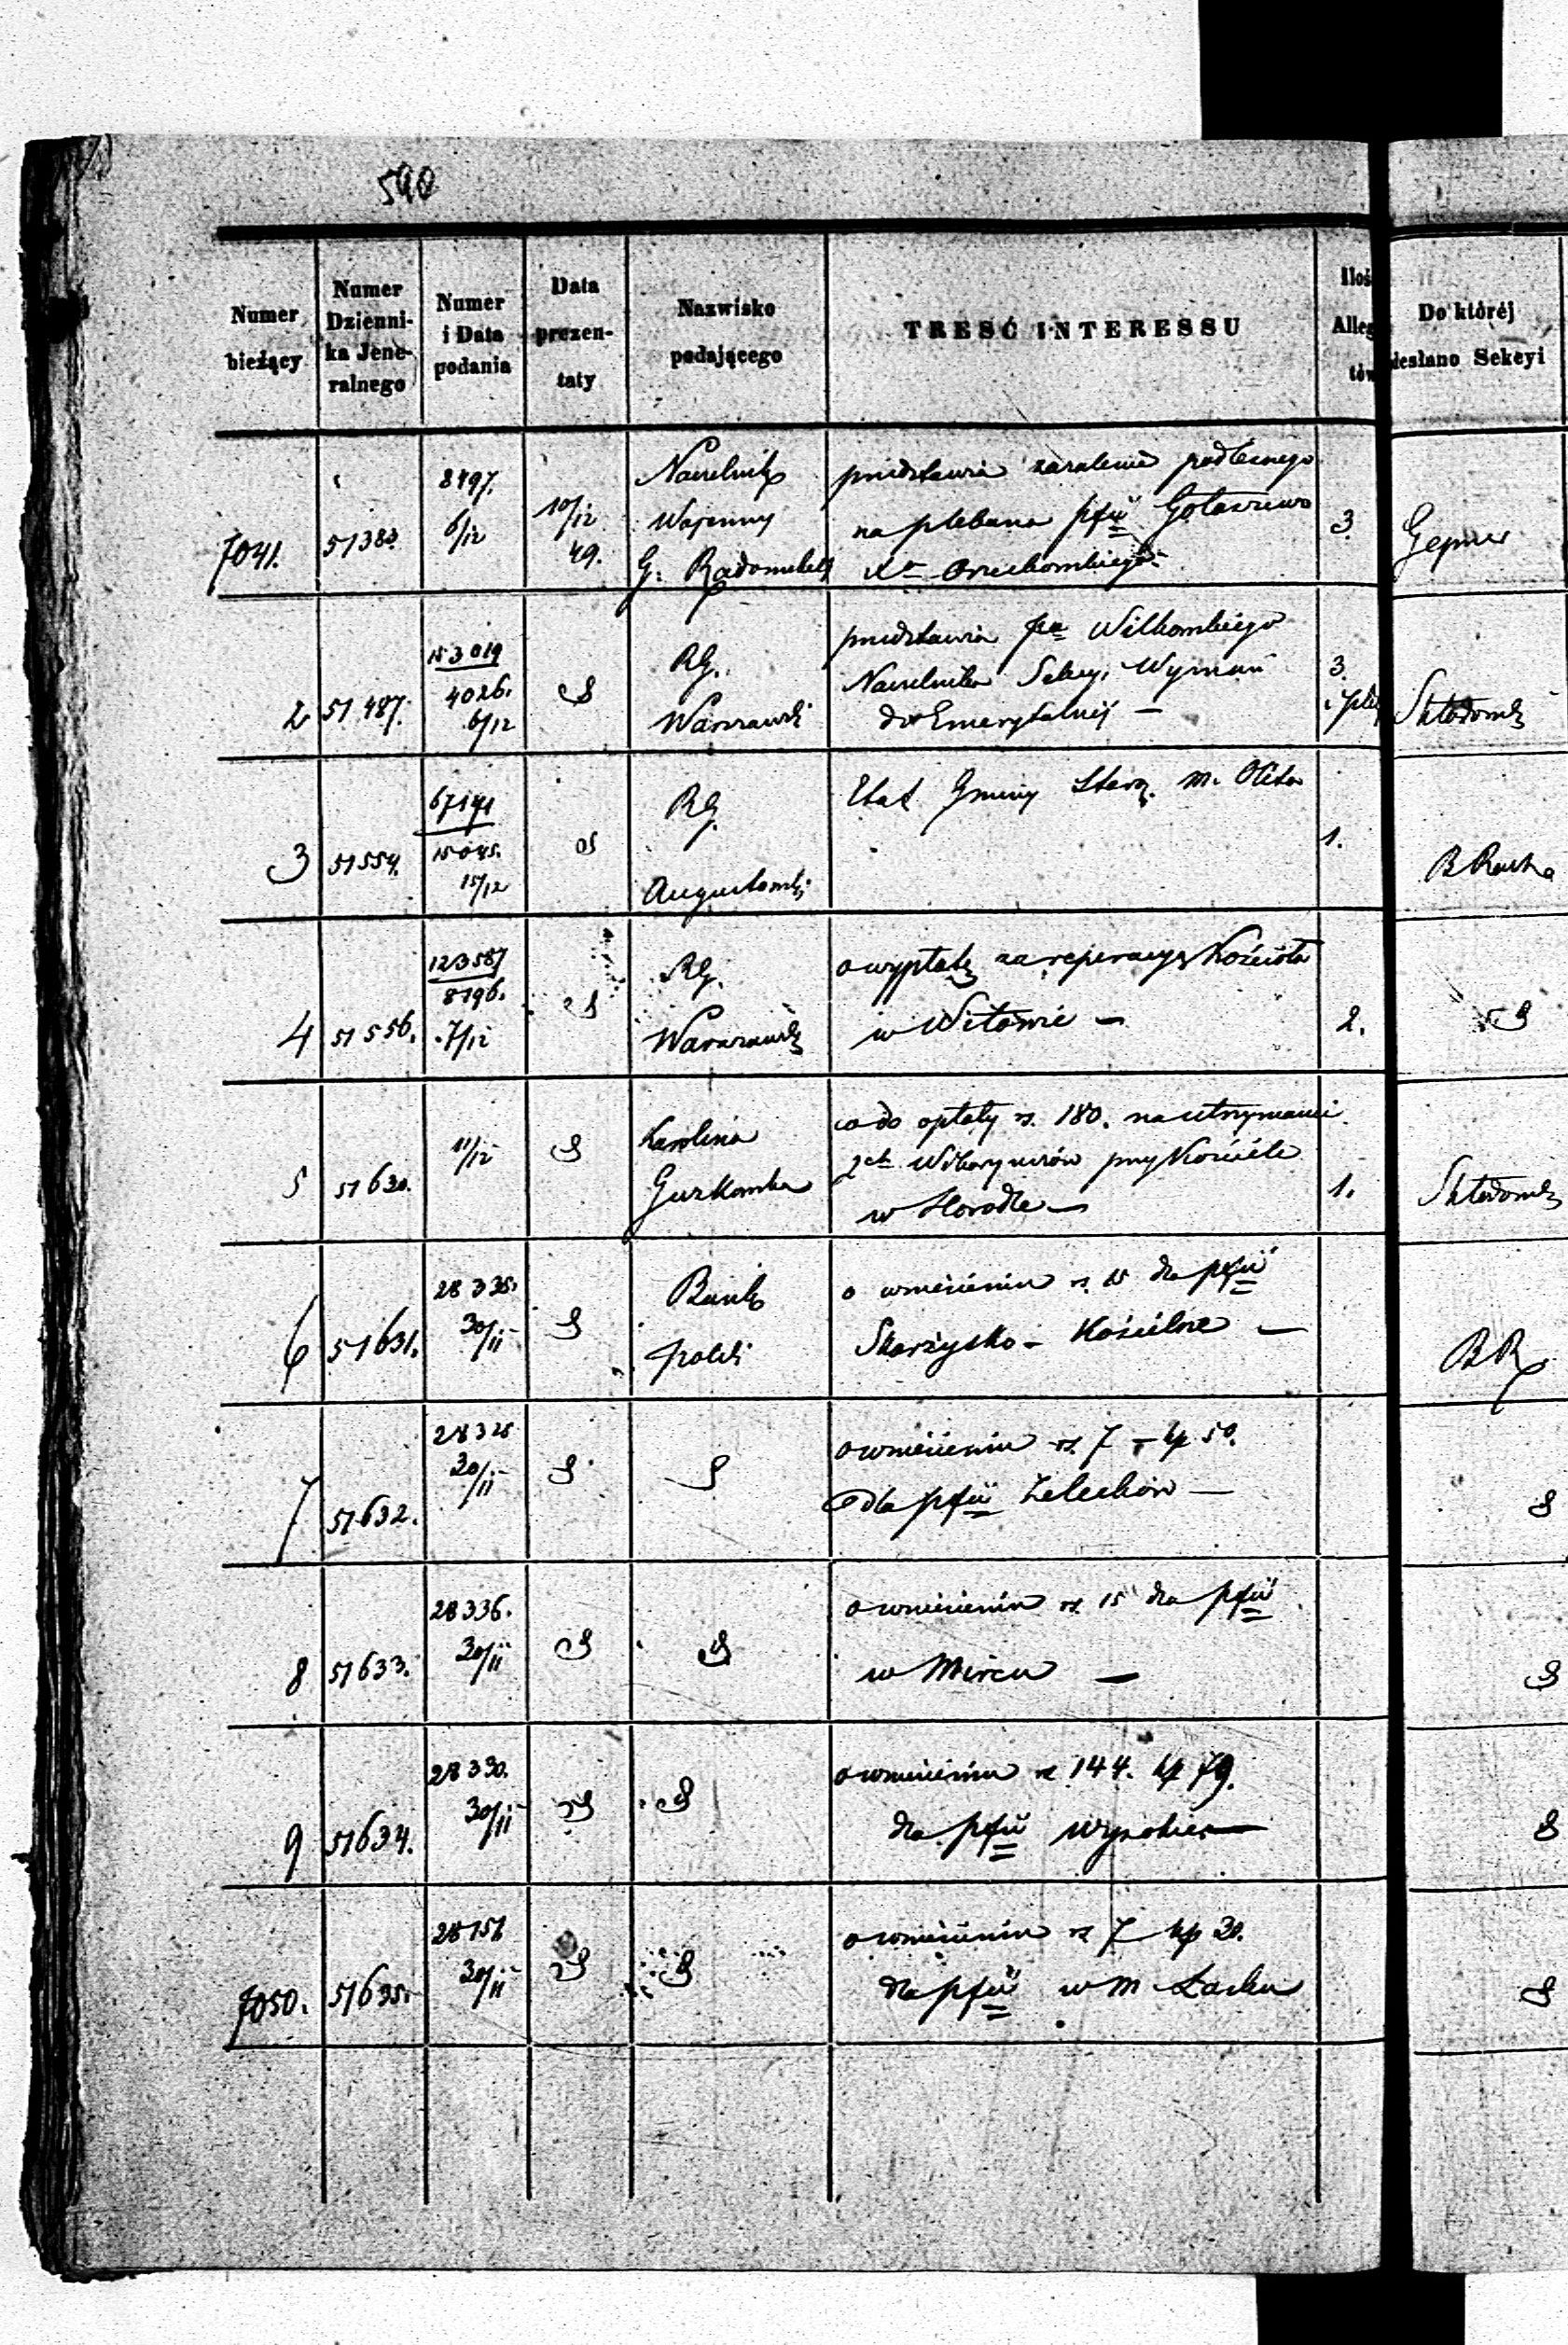 590
Numer bieżący
Numer Dzienni-ka Jene-ralnego
Numer i Data podania
Data prezen-taty
Nazwisko podającego
TREŚĆ INTERESSU
Iloś Alleg tów
Do któréj desłano Sekcyi
7041. 51383. 8497. 6/12 10/12 49.
Naczelnik
Wojenny
G. Radomskiej
przedstawia zażalenie
na plebana pfii
Xa Orzechowskiego
3
Gepner
2 51487. 153019 4026. 6/12
RG.
Warszawski
przedstawia Wilkowskiego
Naczelnika Sekcyi Wyznań
do Emerytalnéj —
3.
Skłodowski
3 51554. 67171 15045. 15/12
RG.
Augustowski
Etat Gminy Starz. m. Olita
1.
4 51556. 123587 8196. 7/12
RG.
Warszawski
o wypłatę za reperacyę Kościoła
w Witowie —
2.
5 51630. 11/12
Karolina
co do opłaty rs. 180. na utrzymanie
2ch Wikaryuszów przy Kościele
w Horodle —
1.
Skłodowski
6 51631. 28335. 30/11
Bank
polski
o wniesieniu rs. 15 dla pfii
Skarżysko - Kościelne —
BR
7 51632. 28325 30/11
o wniesieniu rs. 7 - kp 50.
dla pfii Żelechów —
8 51633. 28336. 30/11
o wniesieniu rs. 15 dla pfii
w Mircu —
9 51634. 28330. 30/11
o wniesieniu rs. 144. kp 79.
dla pfii Wysokie —
7050. 51635. 28156 30/11
o wniesieniu rs 7 kp 30.
dla pfii w m Łasku